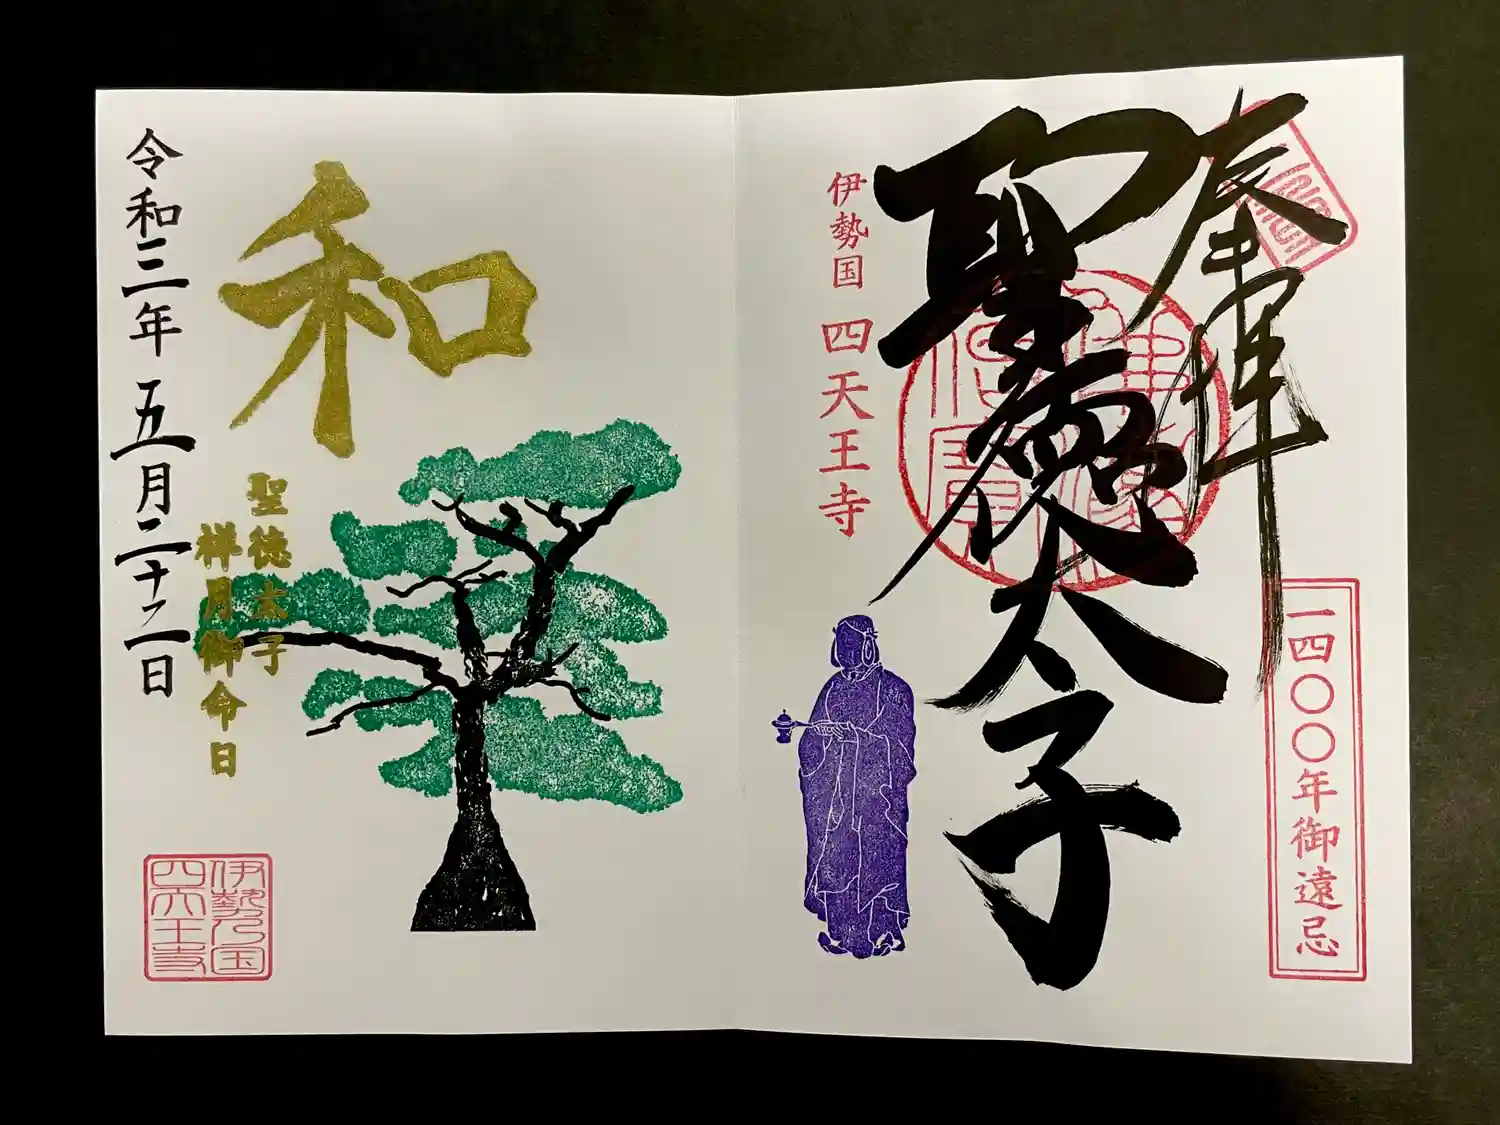 奉拝
一四〇〇年御遠忌
聖徳太子
伊勢国 四天王寺
和
聖徳太子
祥月御命日
令和三年 五月二十二日
伊勢乃国
四天王寺